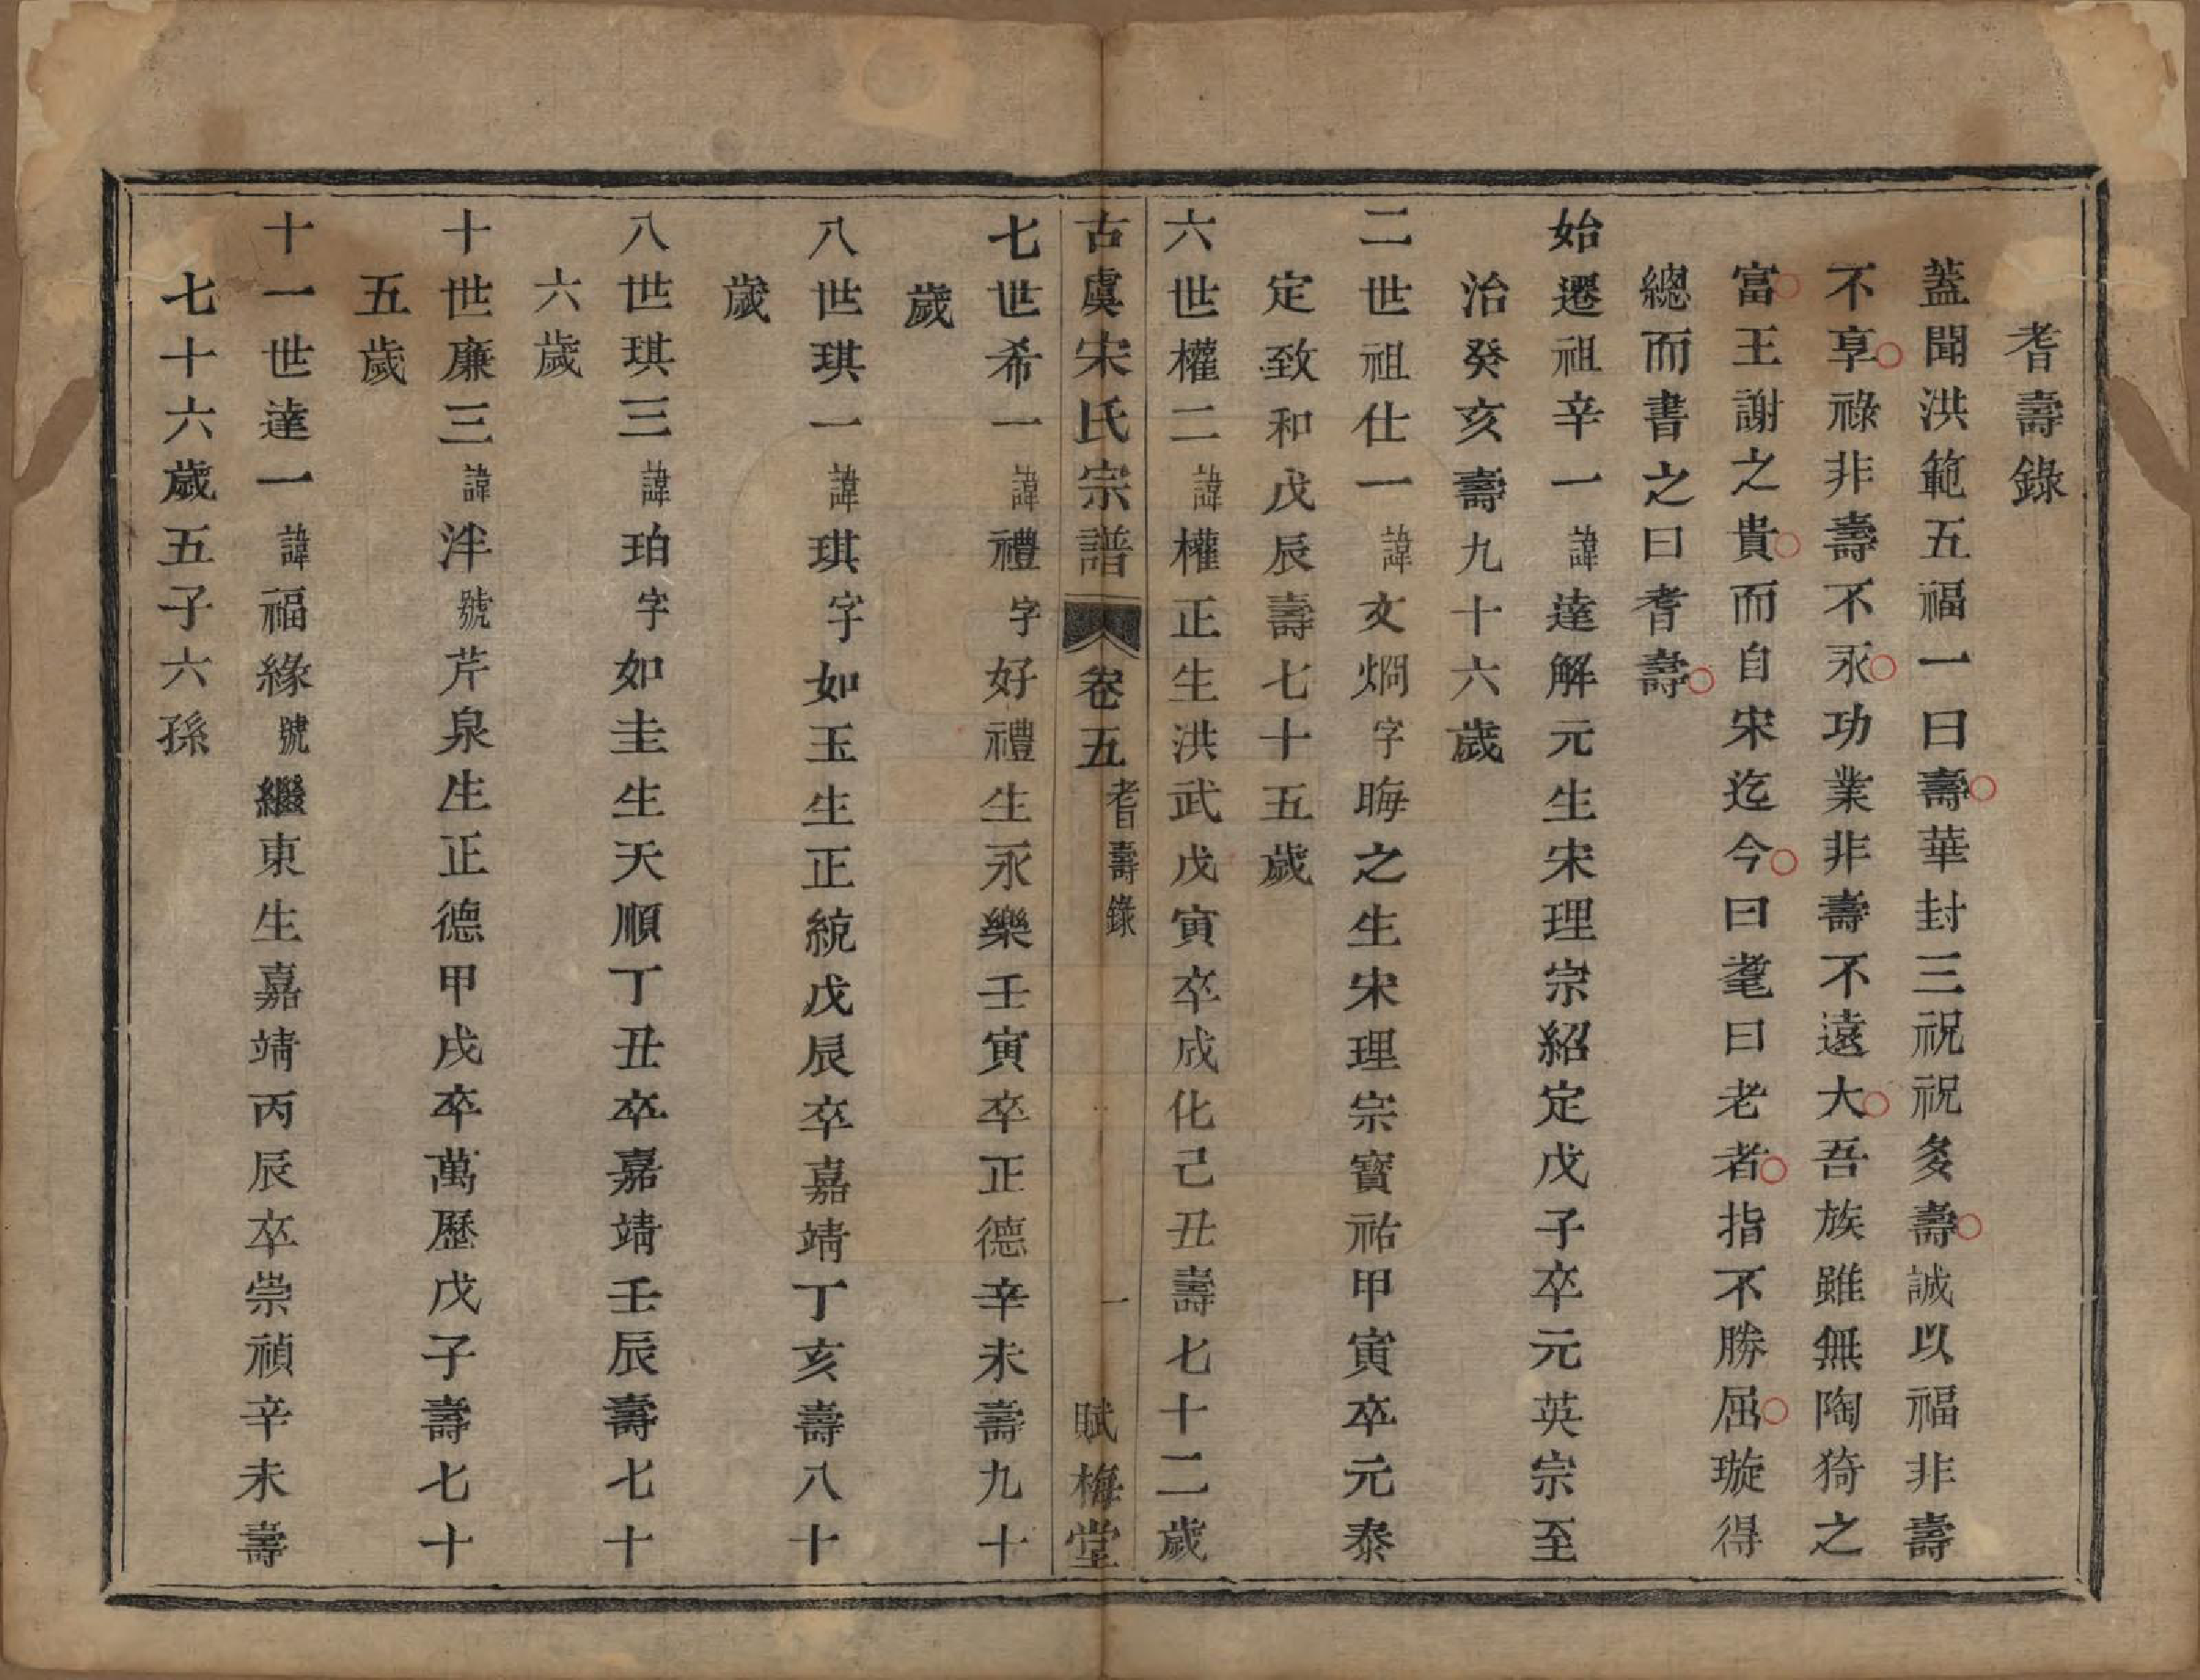 耆壽錄
蓋聞洪範五福一曰壽華封三祝祝多壽誠以福非壽
不享祿非壽不永功業非壽不遠大吾族雖無陶猗之
富王謝之貴而自宋迄今曰耄曰老者指不勝屈璇得
總而書之曰耆壽
始遷祖辛一諱達解元生宋理宗紹定戊子卒元英宗至
治癸亥壽九十六歲
二世祖仕一諱文燗字晦之生宋理宗寶祐甲寅卒元泰
定致和戊辰壽七十五歲
六世權二諱權正生洪武戊寅卒成化己丑壽七十二歲
古虞宋氏宗譜 卷五 耆壽錄 一 賦梅堂
七世希一諱禮字好禮生永樂壬寅卒正德辛未壽九十
歲
八世琪一諱琪字如玉生正統戊辰卒嘉靖丁亥壽八十
歲
八世琪三諱珀字如圭生天順丁丑卒嘉靖壬辰壽七十
六歲
十世廉三諱泮號芹泉生正德甲戌卒萬歷戊子壽七十
五歲
十一世達一諱福緣號繼東生嘉靖丙辰卒崇禎辛未壽
七十六歲五子六孫